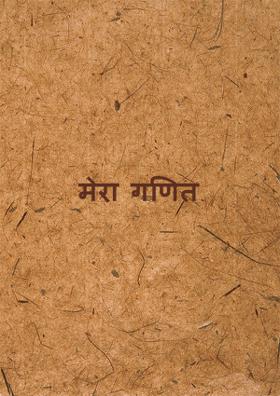 मेरा गणित